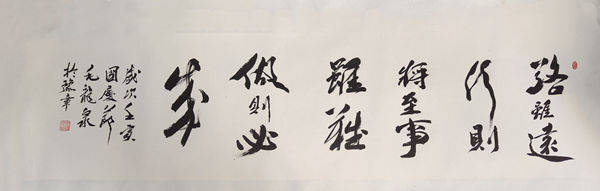 路雖遠
行則
將至事
雖難
做則必
成
歲次壬寅
國慶節
毛龍泉
於豫章